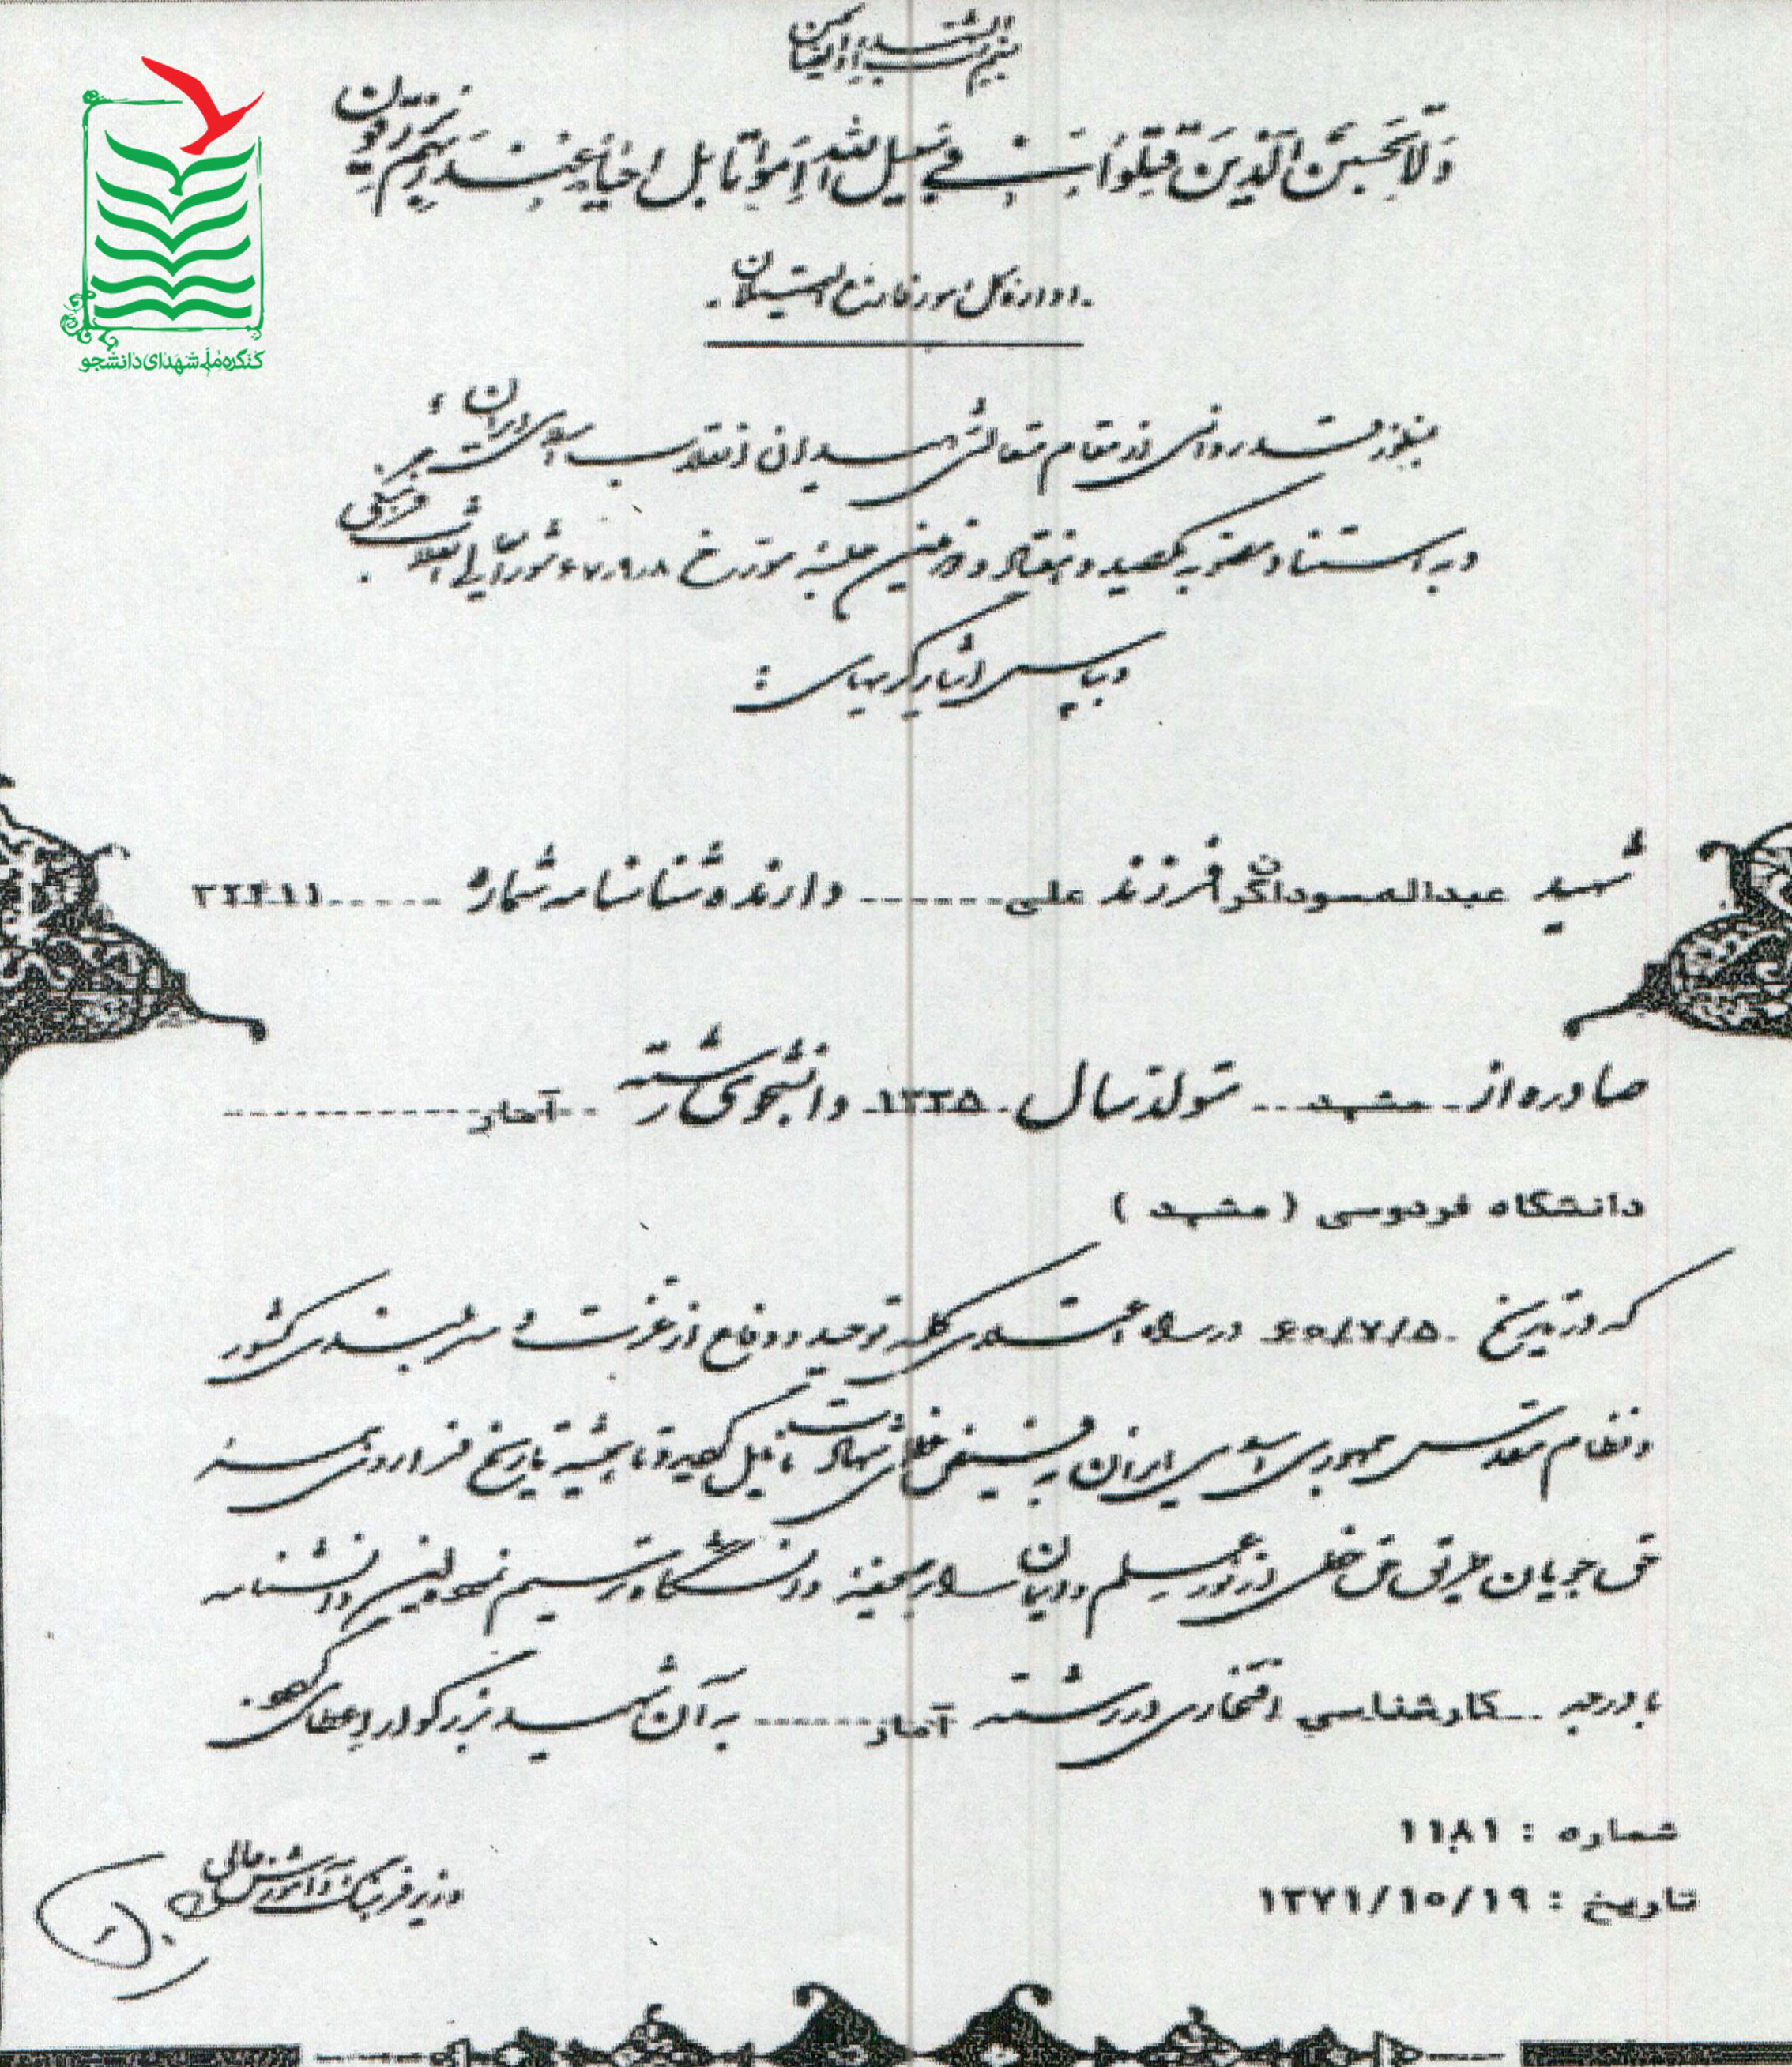 بسم رب الشهداء والصدیقین
وَلَا تَحْسَبَنَّ الَّذِینَ قُتِلُوا فِی سَبِیلِ اللهِ أَمْوَاتًا بَلْ أَحْیَاءٌ عِنْدَ رَبِّهِمْ یُرْزَقُونَ
کنگره ملی شهدای دانشجو
اداره کل امور فارغ التحصیلان
بمنظور قدردانی از مقام متعالی شهیدان انقلاب اسلامی ایران،
و به استناد مصوبه یکصد و هفتاد و نهمین جلسه مورخ ۶۷،۹،۸ شورایعالی انقلاب فرهنگی
و بپاس ایثارگریهای:
شهید عبدالمسود فرزند علی دارنده شناسنامه شماره
صادره از مشهد متولد سال ۱۳۳۵ دانشجوی رشته آمار
دانشگاه فردوسی ( مشهد )
که در تاریخ ۶۰/۷/۵ در راه اعتلای کلمه توحید و دفاع از عزت و سربلندی کشور
و نظام مقدس جمهوری اسلامی ایران به فیض عظمای شهادت نایل گردید و تا همیشه تاریخ فرا روی همه
حق جویان طریقی حق خطی از نور علم و ایمان دانشگاه ترسیم نمود این دانشنامه
با درجه کارشناسی افتخاری در رشته آمار به آن شهید بزرگوار اعطا می گردد.
شماره : ۱۱۸۱
تاریخ : ۱۳۷۱/۱۰/۱۹
وزیر فرهنگ و آموزش عالی